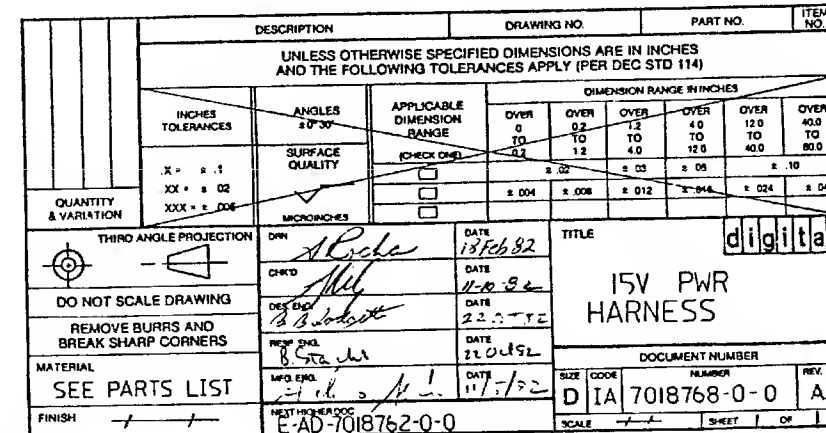 DESCRIPTION DRAWING NO. PART NO. ITEM NO.
UNLESS OTHERWISE SPECIFIED DIMENSIONS ARE IN INCHES
AND THE FOLLOWING TOLERANCES APPLY (PER DEC STD 114)
QUANTITY
& VARIATION
INCHES
TOLERANCES
.X = ± .1
XX = ± 02
XXX = ± .005
ANGLES
± 0° 30'
SURFACE
QUALITY
MICROINCHES
APPLICABLE
DIMENSION
RANGE
(CHECK ONE)
DIMENSION RANGE IN INCHES
OVER 0 TO 0.2
OVER 0.2 TO 1 2
OVER 1.2 TO 4.0
OVER 4 0 TO 12 0
OVER 12 0 TO 40.0
OVER 40.0 TO 80.0
± .02 ± 03 ± 05 ± .10
± 004 ± .008 ± 012 ± .016 ± 024 ± 04
THIRD ANGLE PROJECTION
DO NOT SCALE DRAWING
REMOVE BURRS AND
BREAK SHARP CORNERS
MATERIAL
SEE PARTS LIST
FINISH
DRN A Rocha DATE 18 Feb 82
CHK'D DATE
DES ENG. DATE
RESP ENG. DATE 22 Oct 82
MFG. ENG. DATE
NEXT HIGHER DOC
E-AD-7018762-0-0
TITLE
digita
15V PWR
HARNESS
DOCUMENT NUMBER
SIZE CODE NUMBER REV.
D IA 7018768-0-0 A
SCALE SHEET OF